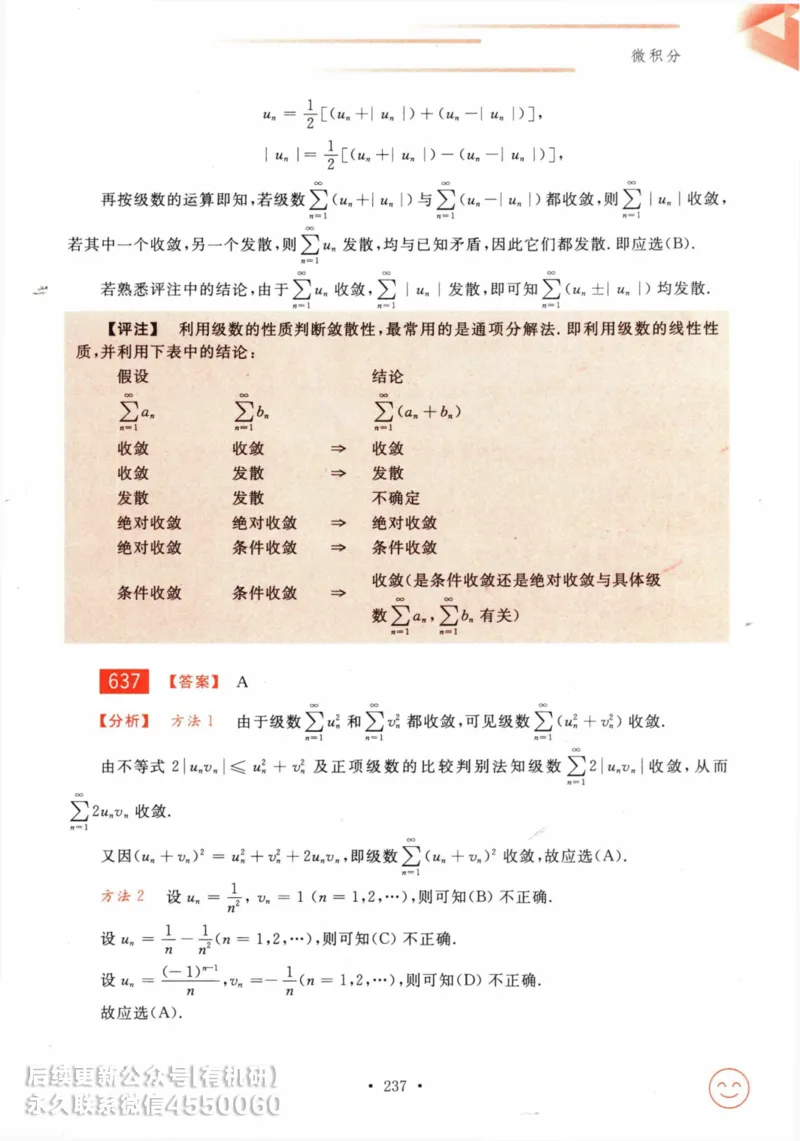 微积分
uₙ = 1/2[(uₙ+|uₙ|)+(uₙ-|uₙ|)],
|uₙ| = 1/2[(uₙ+|uₙ|)-(uₙ-|uₙ|)],
再按级数的运算即知,若级数∑_{n=1}^{∞}(uₙ+|uₙ|)与∑_{n=1}^{∞}(uₙ-|uₙ|)都收敛,则∑_{n=1}^{∞}|uₙ|收敛,
若其中一个收敛,另一个发散,则∑_{n=1}^{∞}uₙ 发散,均与已知矛盾,因此它们都发散.即应选(B).
若熟悉评注中的结论,由于∑_{n=1}^{∞}uₙ 收敛,∑_{n=1}^{∞}|uₙ| 发散,即可知∑_{n=1}^{∞}(uₙ±|uₙ|)均发散.
【评注】 利用级数的性质判断敛散性,最常用的是通项分解法.即利用级数的线性性
质,并利用下表中的结论:
假设 结论
∑_{n=1}^{∞}aₙ ∑_{n=1}^{∞}bₙ ∑_{n=1}^{∞}(aₙ+bₙ)
收敛 收敛 ⇒ 收敛
收敛 发散 ⇒ 发散
发散 发散 不确定
绝对收敛 绝对收敛 ⇒ 绝对收敛
绝对收敛 条件收敛 ⇒ 条件收敛
条件收敛 条件收敛 ⇒ 收敛(是条件收敛还是绝对收敛与具体级
数∑_{n=1}^{∞}aₙ,∑_{n=1}^{∞}bₙ 有关)
637 【答案】 A
【分析】 方法1 由于级数∑_{n=1}^{∞}uₙ² 和∑_{n=1}^{∞}vₙ² 都收敛,可见级数∑_{n=1}^{∞}(uₙ²+vₙ²)收敛.
由不等式 2|uₙvₙ|≤uₙ²+vₙ² 及正项级数的比较判别法知级数∑_{n=1}^{∞}2|uₙvₙ|收敛,从而
∑_{n=1}^{∞}2uₙvₙ 收敛.
又因(uₙ+vₙ)² = uₙ²+vₙ²+2uₙvₙ,即级数∑_{n=1}^{∞}(uₙ+vₙ)² 收敛,故应选(A).
方法2 设 uₙ = 1/n², vₙ = 1 (n = 1,2,…),则可知(B)不正确.
设 uₙ = 1/n - 1/n²(n = 1,2,…),则可知(C)不正确.
设 uₙ = (-1)ⁿ⁻¹/n,vₙ = -1/n(n = 1,2,…),则可知(D)不正确.
故应选(A).
后续更新公众号[有机研]
永久联系微信4550060
• 237 •